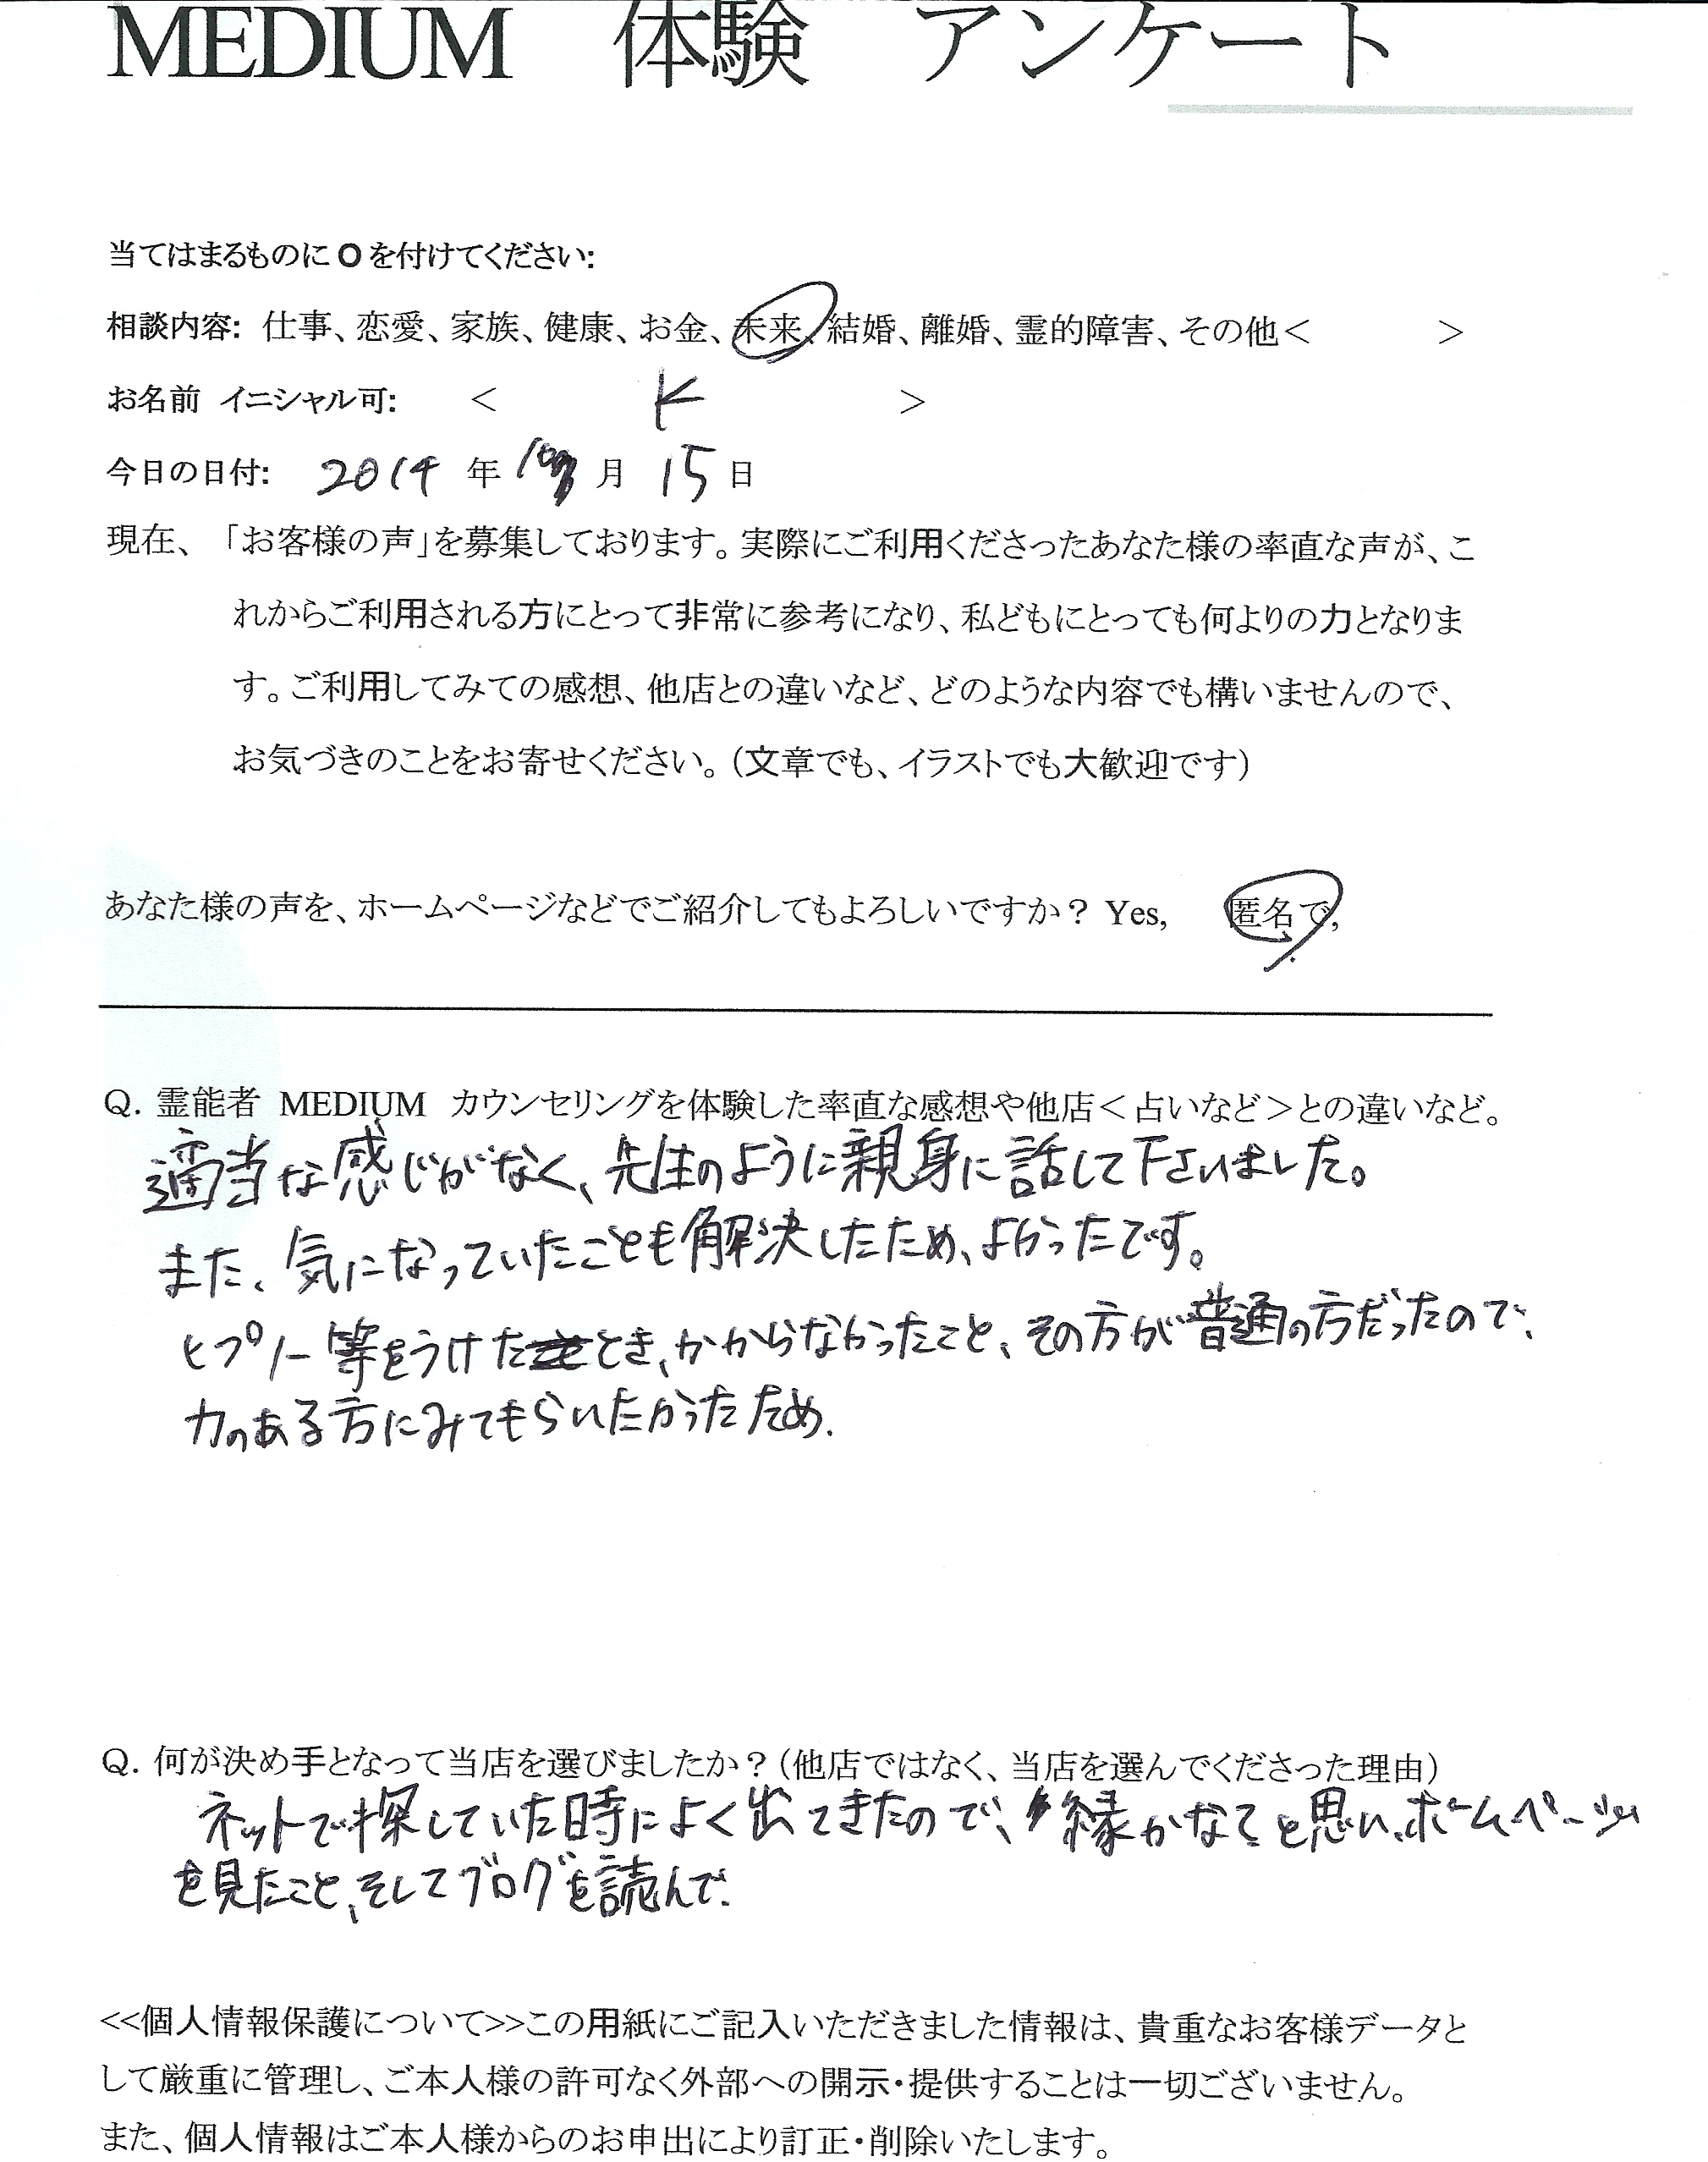 MEDIUM 体験 アンケート
当てはまるものに O を付けてください:
相談内容: 仕事、恋愛、家族、健康、お金、未来、結婚、離婚、霊的障害、その他< >
お名前 イニシャル可: < K >
今日の日付: 2014 年 10 月 15 日
現在、「お客様の声」を募集しております。実際にご利用くださったあなた様の率直な声が、こ
れからご利用される方にとって非常に参考になり、私どもにとっても何よりの力となりま
す。ご利用してみての感想、他店との違いなど、どのような内容でも構いませんので、
お気づきのことをお寄せください。(文章でも、イラストでも大歓迎です)
あなた様の声を、ホームページなどでご紹介してもよろしいですか? Yes, 匿名で,
Q. 霊能者 MEDIUM カウンセリングを体験した率直な感想や他店<占いなど>との違いなど。
適当な感じがなく、先生のように親身に話して下さいました。
また、気になっていたことも解決したため、よかったです。
ヒプノー等をうけたとき、かからなかったこと、その方が普通の方だったので、
力のある方にみてもらいたかったため.
Q. 何が決め手となって当店を選びましたか?(他店ではなく、当店を選んでくださった理由)
ネットで探していた時によく出てきたので、縁かなぁと思い、ホームページ
を見たこと、そしてブログを読んで.
<<個人情報保護について>>この用紙にご記入いただきました情報は、貴重なお客様データと
して厳重に管理し、ご本人様の許可なく外部への開示・提供することは一切ございません。
また、個人情報はご本人様からのお申出により訂正・削除いたします。